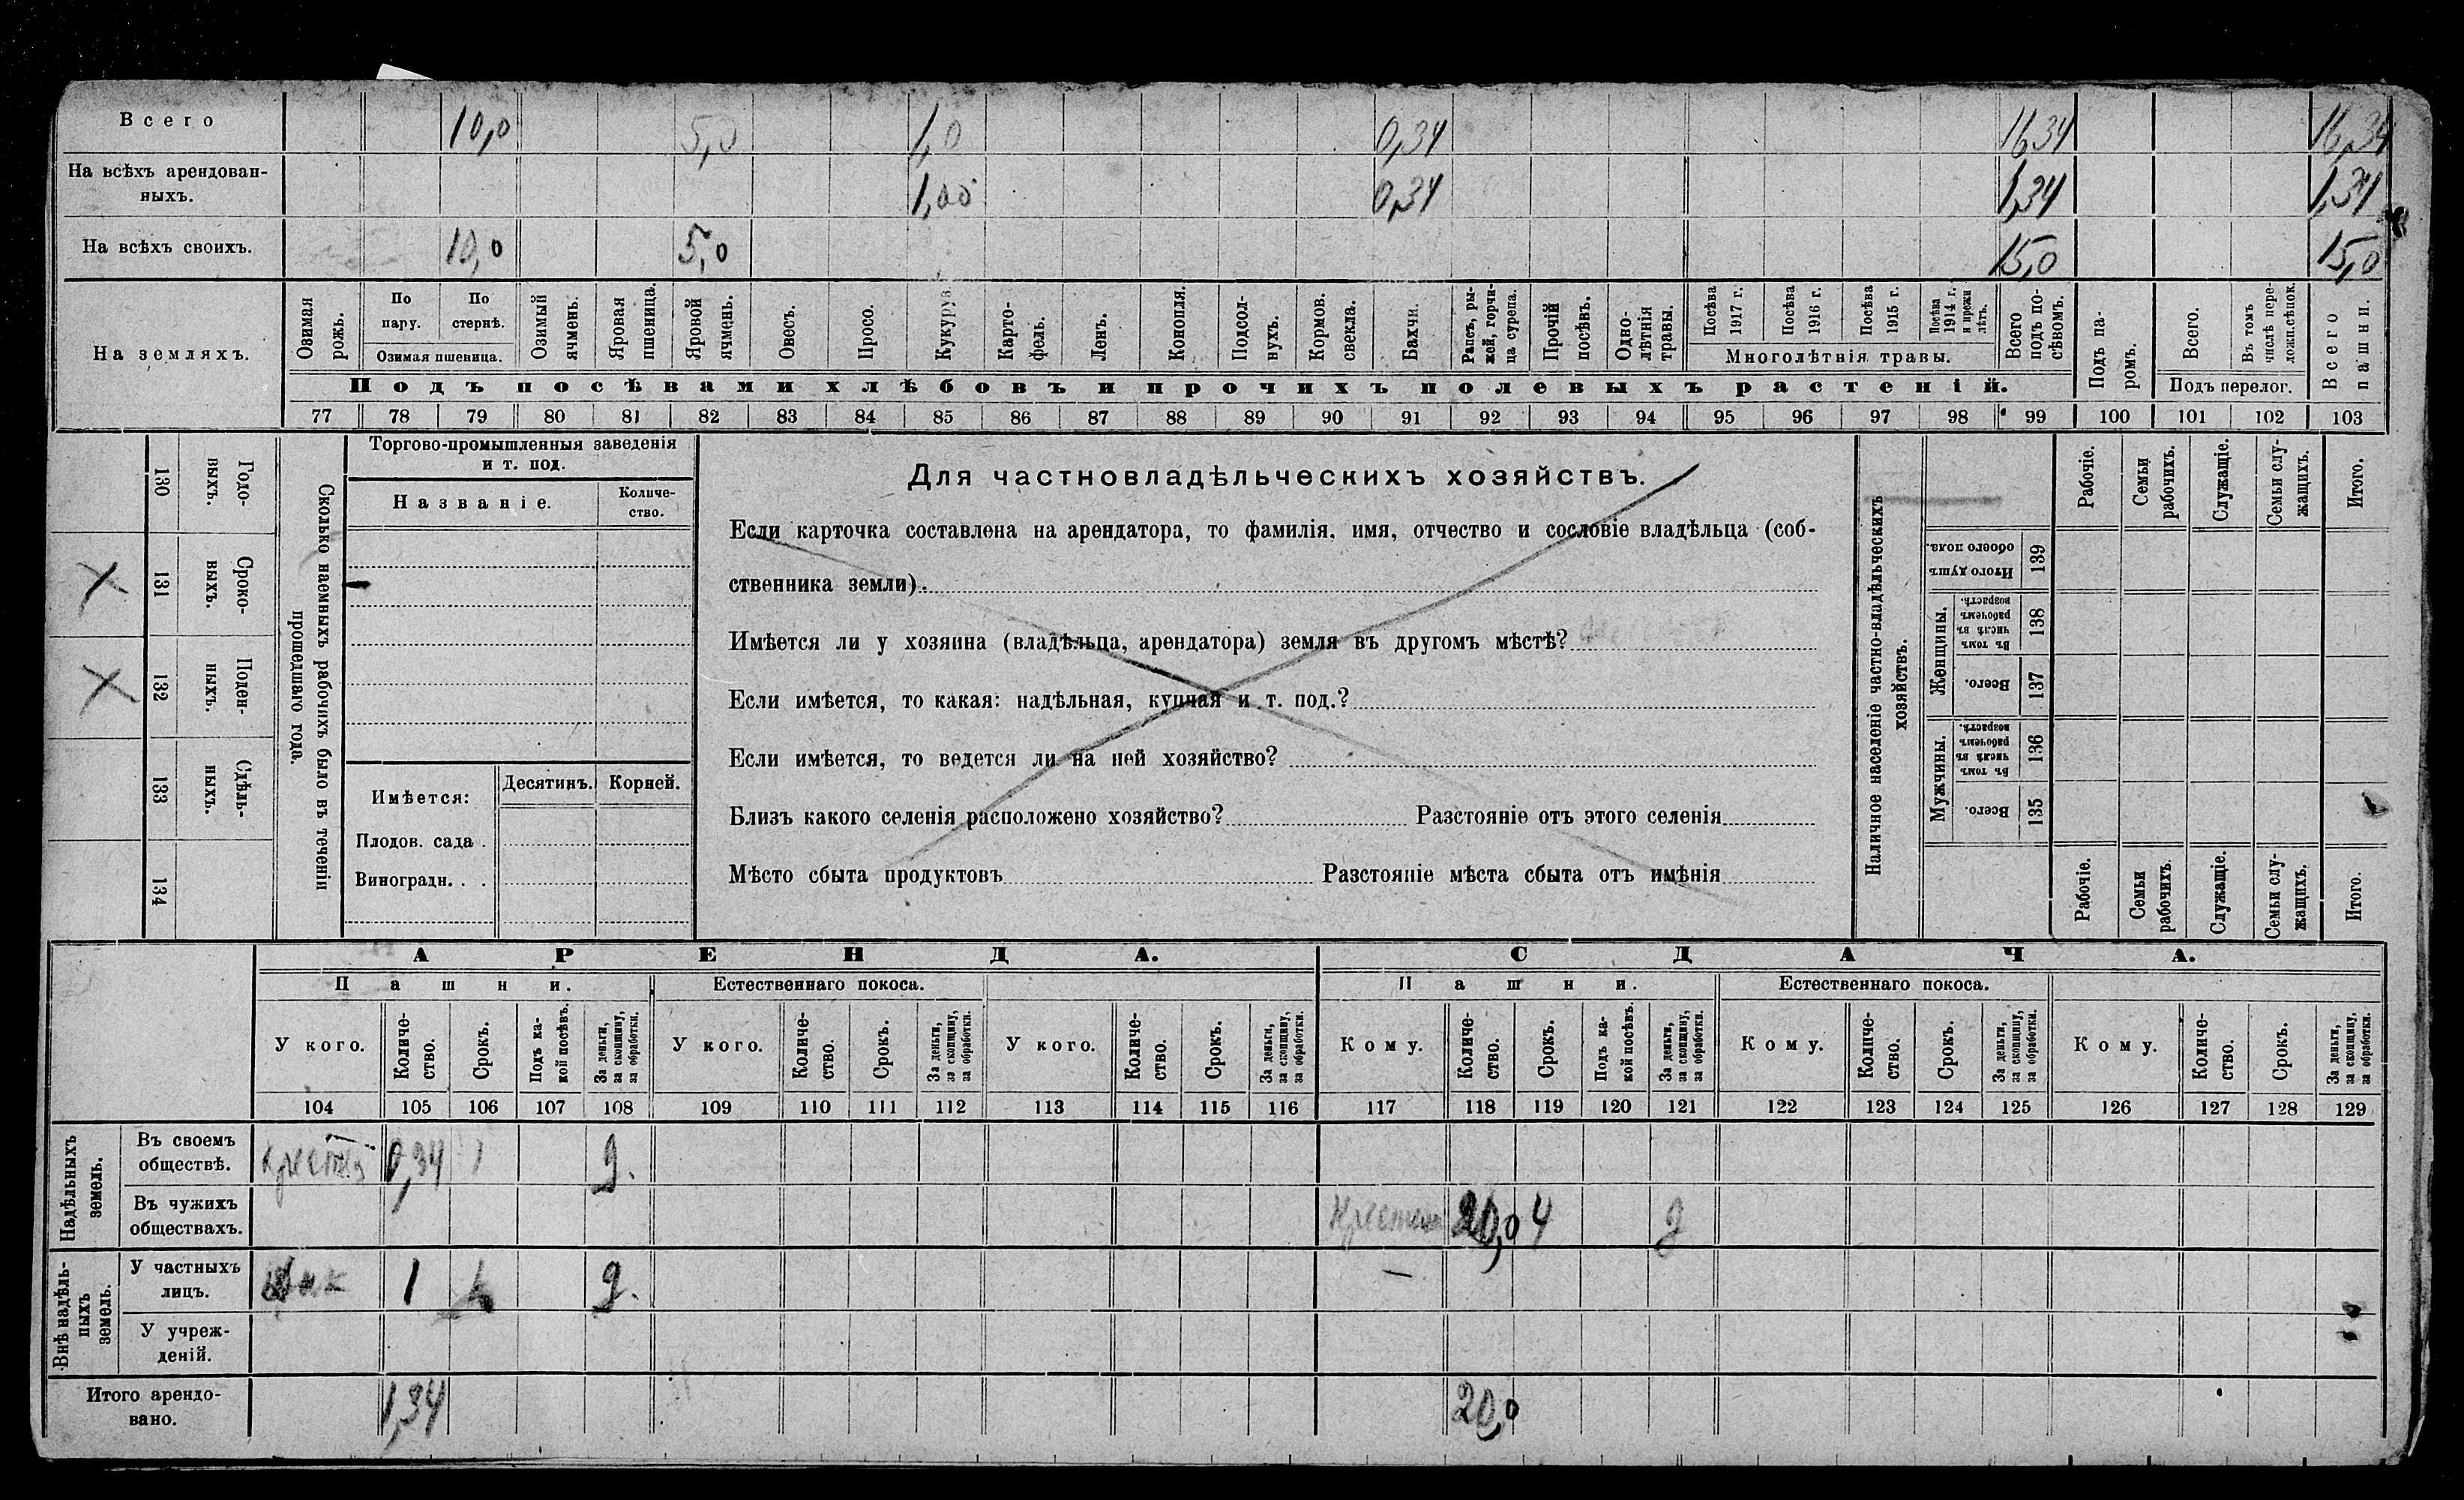 Всего 10,0 5,0 1,0 0,34 16,34 16,34
На всѣхъ арендован-
ныхъ. 1,00 0,34 1,34 1,34
На всѣхъ своихъ. 10,0 5,0 15,0 15,0
На земляхъ.
Озимая рожь.
По пару.
По стернѣ.
Озимая пшеница.
Озимый ячмень.
Яровая пшеница.
Яровой ячмень.
Овесъ.
Просо.
Кукуруз.
Карто-
фель.
Ленъ.
Конопля.
Подсол-
нухъ.
Кормов.
свекла.
Бахчи.
Рапсъ, ры-
жей, горчи-
ца сурепа.
Прочій
посѣвъ.
Одно-
лѣтнія
травы.
Посѣва 1917 г.
Посѣва 1916 г.
Посѣва 1915 г.
Посѣва 1914 г. и прежн лѣтъ.
Многолѣтнія травы.
Всего
подъ по-
сѣвомъ.
Подъ па-
ромъ.
Всего.
Въ томъ
числѣ пере-
ложн.сѣнок.
Подъ перелог.
Всего пашни.
Подъ посѣвами хлѣбовъ и прочихъ полевыхъ растеній.
77 78 79 80 81 82 83 84 85 86 87 88 89 90 91 92 93 94 95 96 97 98 99 100 101 102 103
130 Годо-
выхъ.
131 Сроко-
выхъ.
132 Поден-
ныхъ.
133 Сдѣль-
ныхъ.
134
Сколько наемныхъ рабочихъ было въ теченіи
прошедшаго года.
Торгово-промышленныя заведенія
и т. под.
Названіе.
Количе-
ство.
Имѣется: Десятинъ. Корней.
Плодов. сада .
Виноградн. . .
Для частновладѣльческихъ хозяйствъ.
Если карточка составлена на арендатора, то фамилія, имя, отчество и сословіе владѣльца (соб-
ственника земли).
Имѣется ли у хозяина (владѣльца, арендатора) земля въ другомъ мѣстѣ?
Если имѣется, то какая: надѣльная, купчая и т. под.?
Если имѣется, то ведется ли на ней хозяйство?
Близъ какого селенія расположено хозяйство? Разстояніе отъ этого селенія
Мѣсто сбыта продуктовъ Разстояніе мѣста сбыта отъ имѣнія
Наличное населеніе частно-владѣльческихъ
хозяйствъ.
Рабочіе.
Семьи
рабочихъ.
Служащіе.
Семьи слу-
жащихъ.
Итого.
Итого душъ
обоего пола. 139
Женщины.
Въ томъ числѣ въ рабочемъ возрастѣ. 138
Всего. 137
Мужчины.
Въ томъ числѣ въ рабочемъ возрастѣ. 136
Всего. 135
Рабочіе.
Семьи
рабочихъ.
Служащіе.
Семьи слу-
жащихъ.
Итого.
АРЕНДА. СДАЧА.
Пашни. Естественнаго покоса. Пашни. Естественнаго покоса.
У кого.
Количе-
ство.
Срокъ.
Подъ ка-
кой посѣвъ.
За деньги,
за скопщину,
за обработки.
У кого.
Количе-
ство.
Срокъ.
За деньги,
за скопщину,
за обработки.
У кого.
Количе-
ство.
Срокъ.
За деньги,
за скопщину,
за обработки.
Кому.
Количе-
ство.
Срокъ.
Подъ ка-
кой посѣвъ.
За деньги,
за скопщину,
за обработки.
Кому.
Количе-
ство.
Срокъ.
За деньги,
за скопщину,
за обработки.
Кому.
Количе-
ство.
Срокъ.
За деньги,
за скопщину,
за обработки.
104 105 106 107 108 109 110 111 112 113 114 115 116 117 118 119 120 121 122 123 124 125 126 127 128 129
Надѣльныхъ
земель.
Въ своемъ
обществѣ. 0,34 1 д.
Въ чужихъ
обществахъ. 20,0 4 д
Внѣ надѣль-
ныхъ
земель.
У частныхъ
лицъ. 1 д.
У учреж-
деній.
Итого арендо-
вано. 1,34 20,0